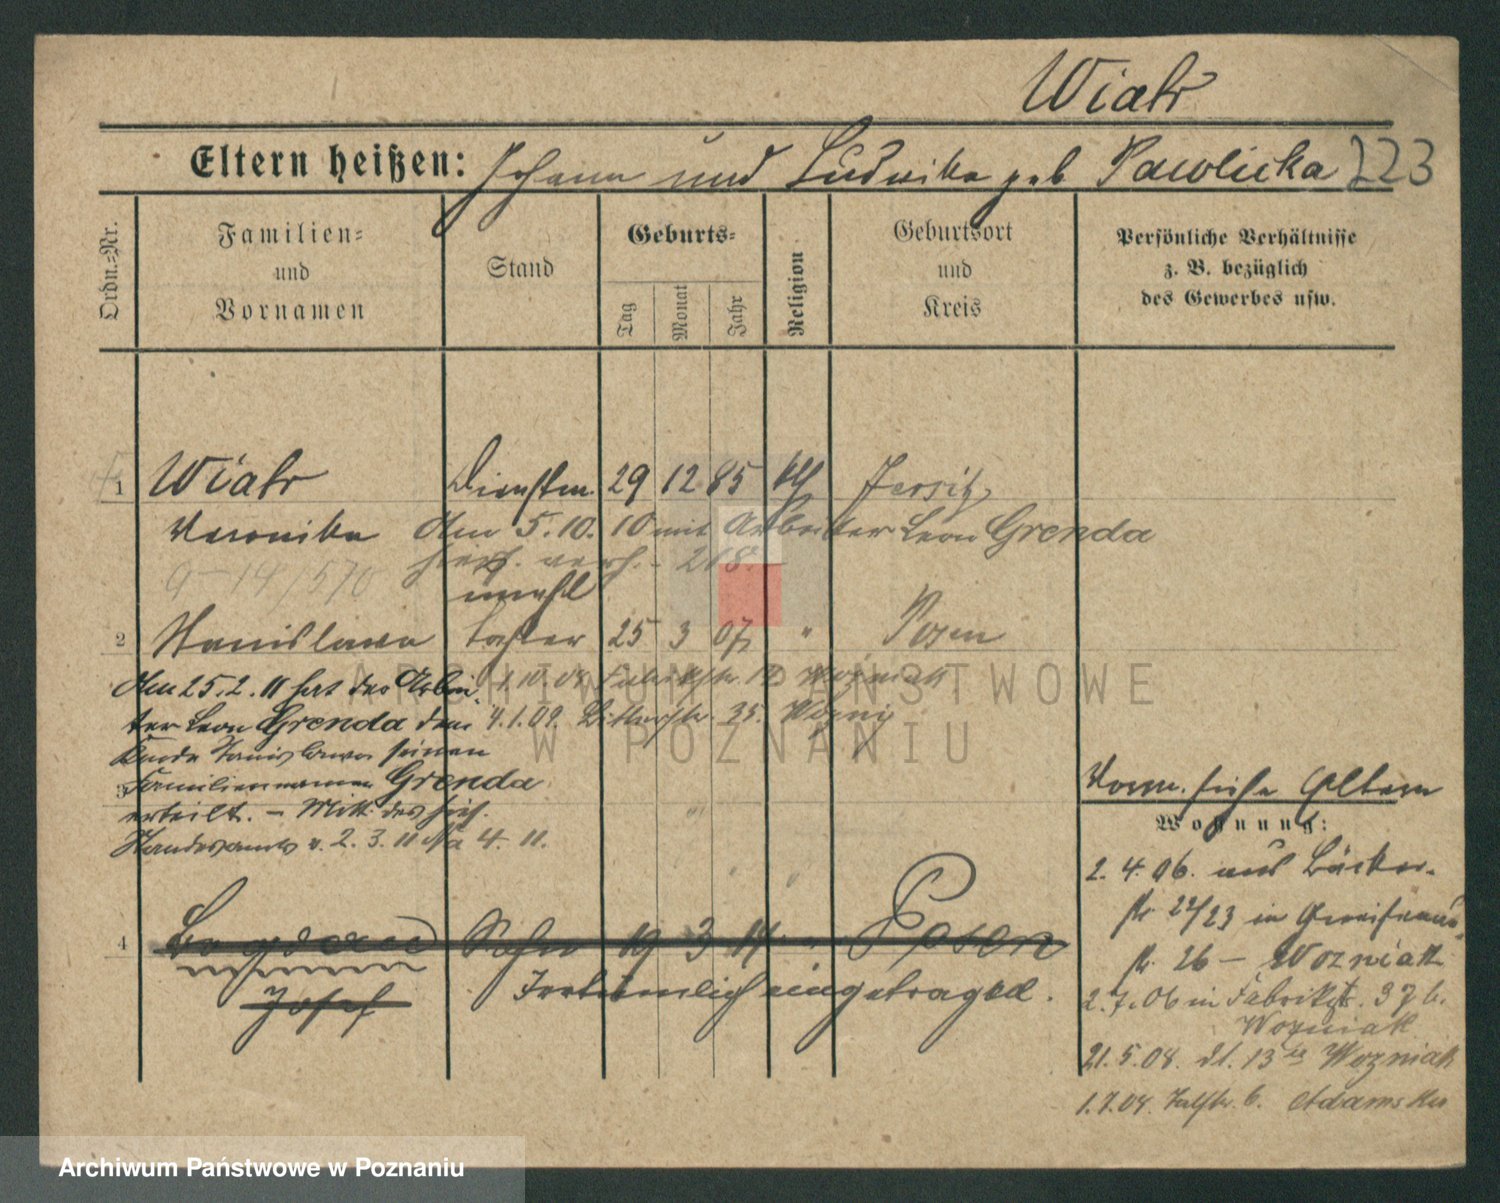 Wiatr
Eltern heißen: Johann und Ludwika geb Pawlicka 223
Ordn.-Nr.
Familien-
und
Vornamen
Stand
Geburts-
Tag
Monat
Jahr
Religion
Geburtsort
und
Kreis
Persönliche Verhältnisse
z. B. bezüglich
des Gewerbes usw.
1 Wiatr Dienstm. 29 12 85 kth Jersitz
Veronika Am 5.10.10 mit Arbeiter Leon Grenda
hies. verh. - 218.
9-14/570
unehl
2 Stanislawa Tochter 25 3 07 " Posen
Am 25.2.11 hat der Arbei-
ter Leon Grenda dem
Kinde Stanislawa seinen
Familiennamen Grenda
erteilt. - Mitt. des hies.
Standesamts v. 2.3.11 No 4.11.
1.10.08 Fabrikstr. 19 Wozniak
4.1.09. 35.
3
4 Sohn 19 3 14 " Posen
Josef
Irrtümlich eingetragen.
Vorm. siehe Eltern
Wohnung:
2.4.06. aus Bäcker-
str. 22/23 in Gneisenau-
str. 26 - Wozniak
2.7.06 in Fabrikstr. 37 b.
Wozniak
21.5.08. dt. 13 Wozniak
1.7.08. 6. Adamski
ARCHIWUM PAŃSTWOWE
W POZNANIU
Archiwum Państwowe w Poznaniu